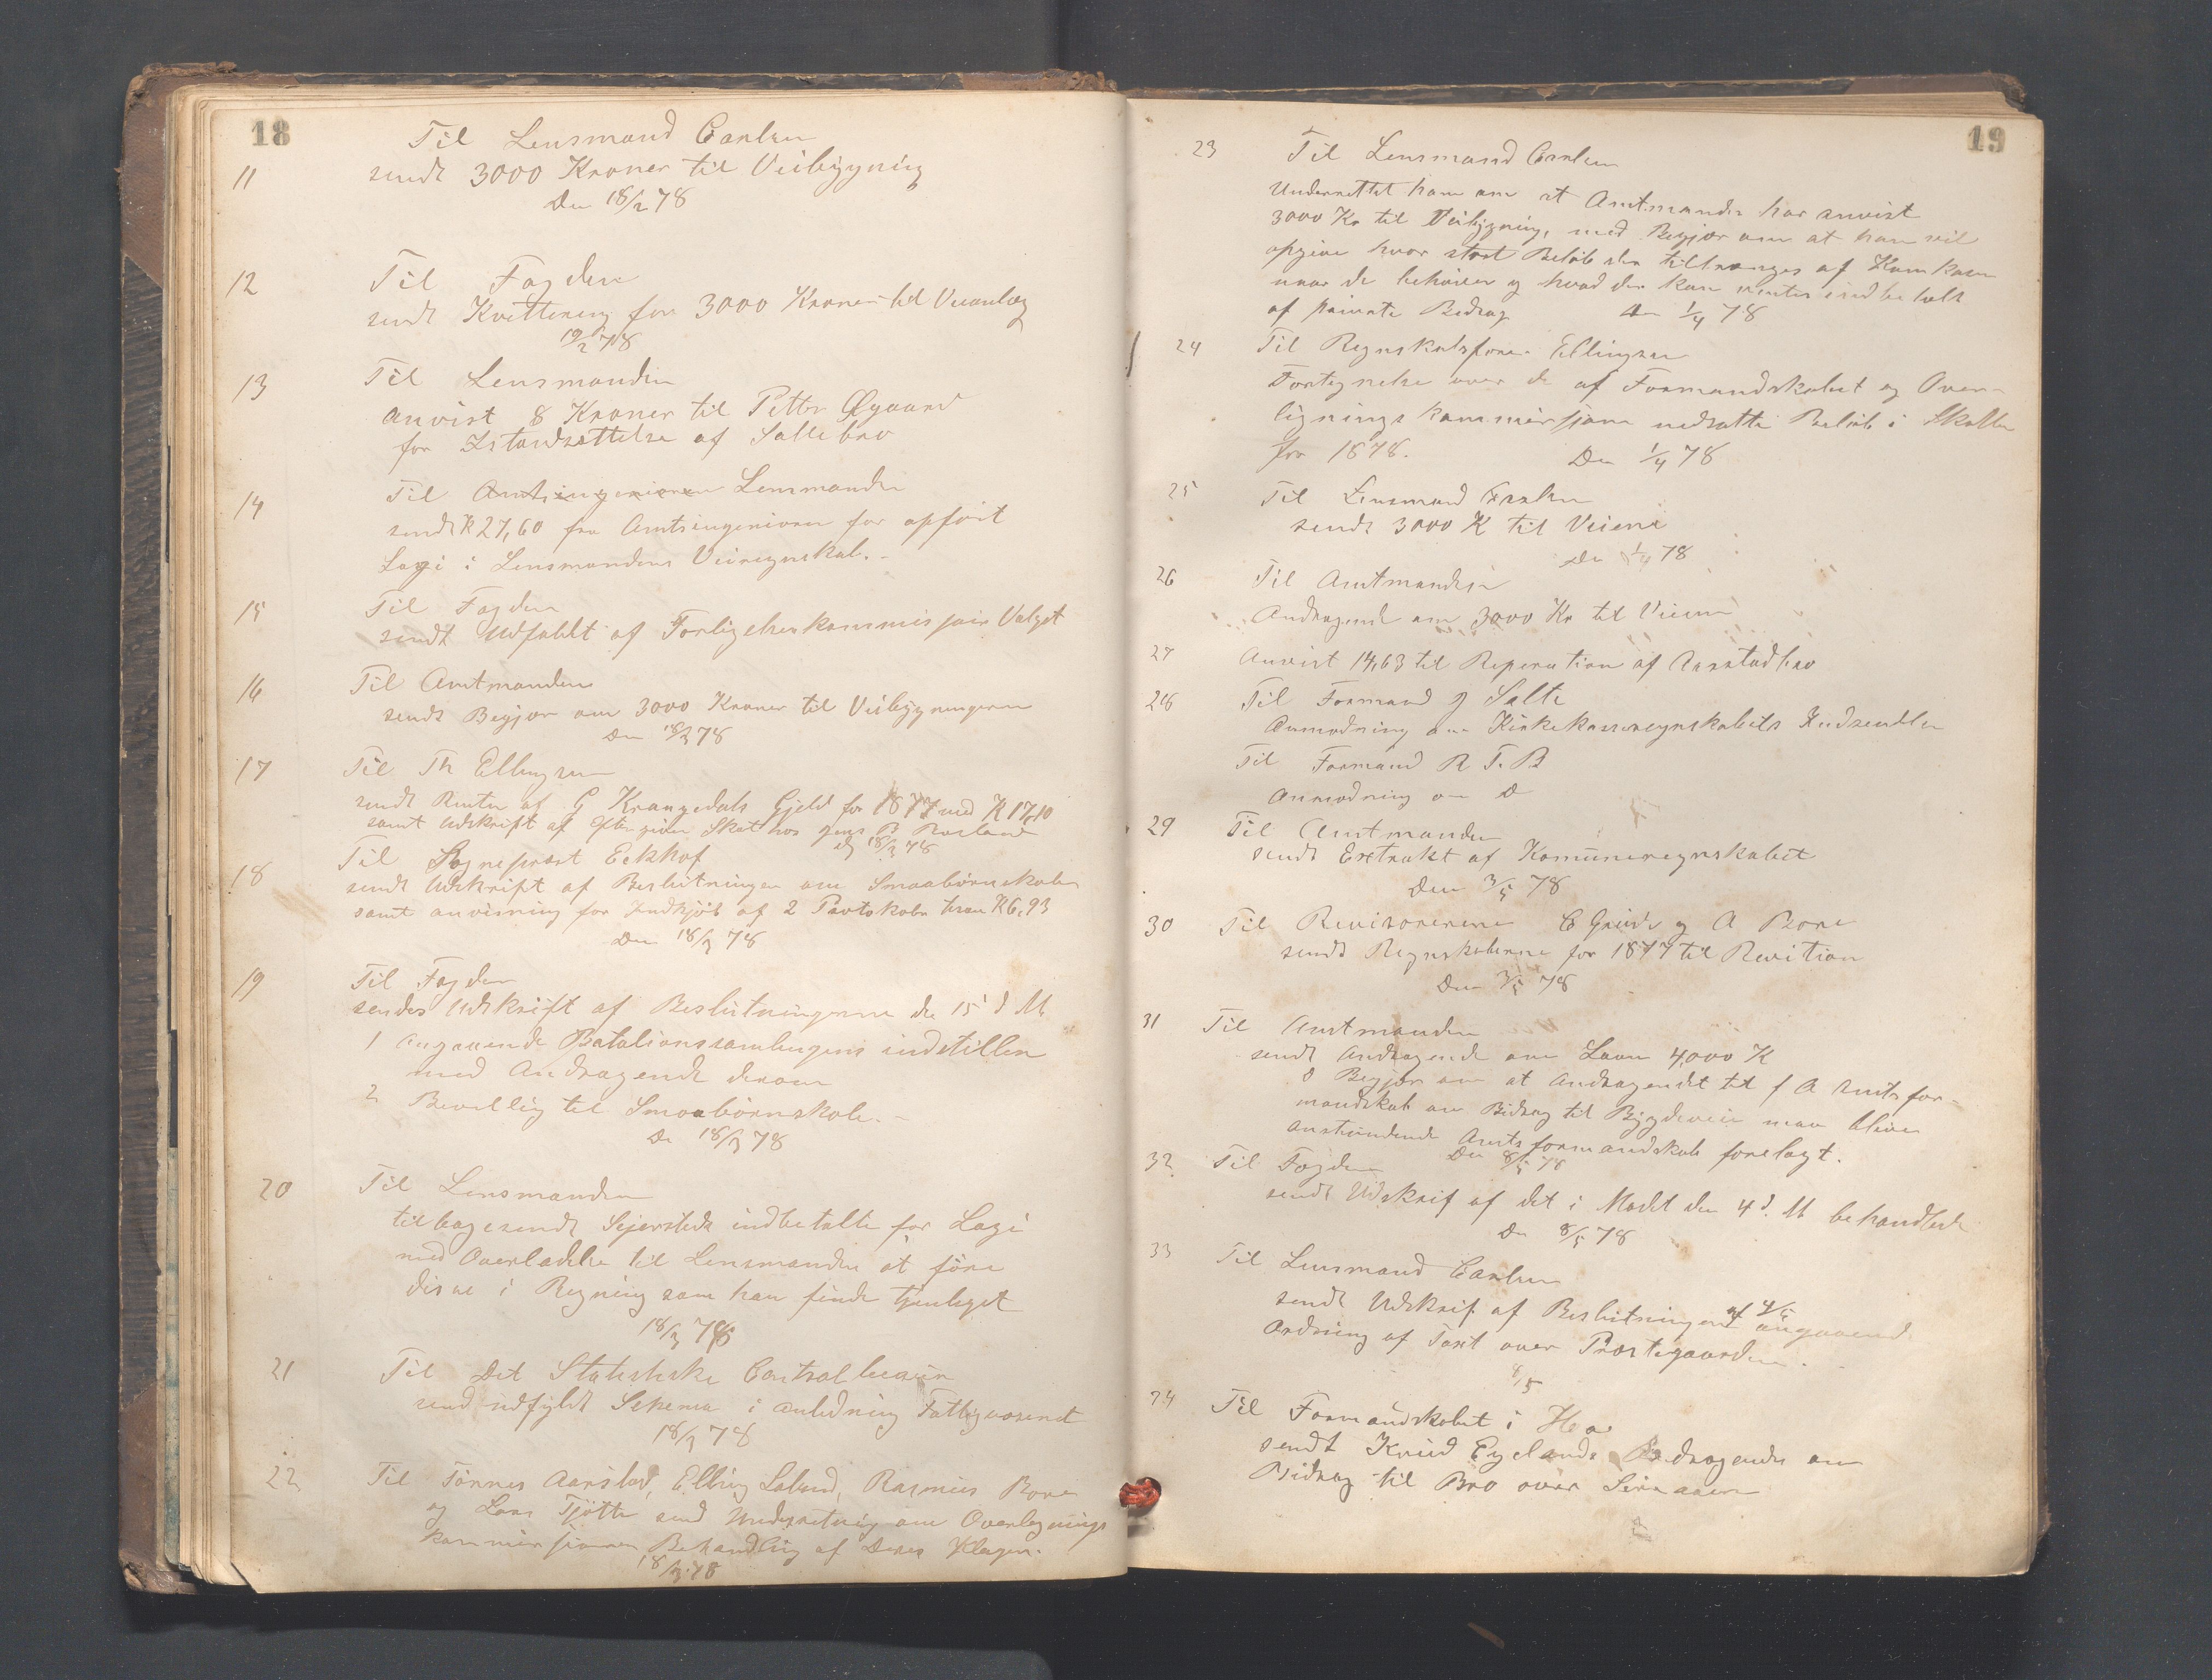 18
Til Lensmand Carlsen
11 sendt 3000 Kroner til Veibygning
Den 18/2 78
12 Til Fogden
sendt Kvittering for 3000 Kroner til Veianlæg
19/2 78
13 Til Lensmanden
Anvist 8 Kroner til Petter Øgaard
for Istandsættelse af Saltebro
14 Til Amtsingeniøren Lensmanden
sendt K 27,60 fra Amtsingeniøren for opført
Logi i Lensmandens Veiregnskab.
15 Til Fogden
sendt Udfaldt af Forligelseskommissair Valget
16 Til Amtmanden
sendt Begjær om 3000 Kroner til Veibygningerne
Den 18/3 78
17 Til Th Ellingsen
sendt Renter af G Krangedals Gjeld for 1877 med K 17,10
samt Udskrift af Skat hos Jens B Rosland
18/3 78
18 Til Sogneprest Eckhof
sendt Udskrift af Beslutningen om Smaabørnskole
samt anvisning for Indkjøb af 2 K 6,93
Den 18/3 78
19 Til Fogden
sendes Udskrift af Beslutningerne de 15 d M
1 Angaaende Batalionssamlingens indstillen
med Andragende derom
2 Bevillig til Smaabørnskole.
De 18/3 78
20 Til Lensmanden
tilbagesendt Sejersteds indbetalte for Logi
med Overladelse til Lensmanden at føre
disse i Regning som han finder tjenligst
18/3 78
21 Til Det Statistiske Centralbureau
send udfyldt Schema i anledning Fattigvæsenet
18/3 78
22 Til Tønnes Aarstad, Elling Laland, Rasmus Bore
og Lars Tjøtte send Underretning om Overlignings
kommissionen Behandling af Deres Klager.
18/3 78
19
23 Til Lensmand Carlsen
Underrettet ham om at Amtmanden har anvist
3000 Kr til Veibygning, med Begjær om at han vil
opgive hvor stort Beløb der tiltrænges af Komkassen
naar de behøves og hvad der kan ventes indbetalt
af private Bidrag Den 1/4 78
24 Til Regnskabsfører Ellingsen
Fortegnelse over de af Formandskabet og Over-
ligningskommissjonen nedsatte Beløb i Skatten
for 1878. Den 1/4 78
25 Til Lensmand Carlsen
sendt 3000 K til Veiene
Den 1/4 78
26 Til Amtmanden
Andragende om 3000 Kr til Veiene
27 Anvist 14,63 til Reperation af Aarstadbro
28 Til Formand J Salte
Anmodning om Kirkekasseregnskabets Indsendelse
Til Formand R T. B
Anmodning om D
29 Til Amtmanden
sendt Extrakt af Komuneregnskabet
Den 3/5 78
30 Til Revisorerene C Grude og A Bore
sendt Regnskaberne for 1877 til Revition
Den 3/5 78
31 Til Amtmanden
sendt Andragende om Laan 4,000 K
o Begjær om at Andragendet til f A Amtsfor-
mandskab om Bidrag til Bygdeveie maa blive
anstundende Amtsformandskab forelagt.
Den 8/5 78
32 Til Fogden
sendt Udskrif af det i Mødet den 4 d. M behandlede
De 8/5 78
33 Til Lensmand Carlsen
sendt Udskrif af Beslutningen af 4/5 angaaend
Ordning af Tomt over Præstegaarden.
8/5
34 Til Formandskabet i Haa
sendt Knud Eigelands Andragende om
Bidrag til Bro over